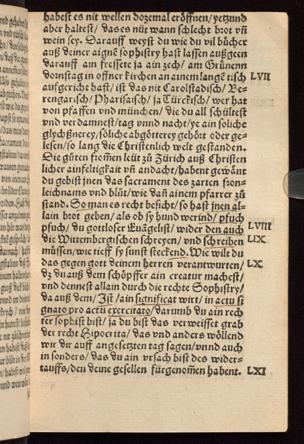 habest es nit wellen dozemal eröffnen/ yetzund
aber haltest/ das es nür wann schlecht brot vñ
wein sey. Darauff weyst du wie du vil bücher
auß deiner aigne sophistry hast lassen außgeen
darauff am fressete ja ain zech/ am Grünenn
donnstag in offner kirchen an ainem lange tisch
LVII
aufgericht hast/ ist das nit Carolstadisch/ Be-
rengarisch/ Pharisaisch/ ja Türckisch/ wer hat
von pfaffen vnd münchen/ die du all schiltest
vnd verdamnest/ tag vnnd nacht/ ye ain söliche
glychßnerey/ söliche abgötterey gehört oder ge-
lesen/ so lang die Christenlich welt gestanden.
Die güten fromen leüt zů Zürich auß Christen
licher ainfeltigkait vñ andacht/ habent gewänt
du gebist jnen das sacrament des zarten fron-
leichnams vnd blüt/ wie dañ ainem pfarrer zů
stand. So man es recht besicht/ so hast jnen al-
lain brot geben/ als ob sy hund werind/ pfuch
pfuch/ du gottloser Euãgelist/ wider den auch
LVIII
die Wittembergischen schreyen/ vnd schreiben
LIX.
müssen/ wie tieff sy sunst steckend. Wie wilt du
das gegen gott deinem herren verantwurten/
LX.
dz du auß dem schöpffer ain creatur machest/
vnd dennest allain durch die rechte Sophistry/
da auß dem/ Ist/ ain significat wirt/ in actu si
gnato pro actu exercitato/ darumb du ain rech
ter sophist bist/ ja du bist das verweisset grab
der recht Hipocrita/ das vnd anders wöllend
wir dir auff angesetzten tag sagen/ vnnd auch
in sonders/ das du ain vrsach bist des wider-
tauffs/ den deine gesellen fürgenom̃en habent.
LXI